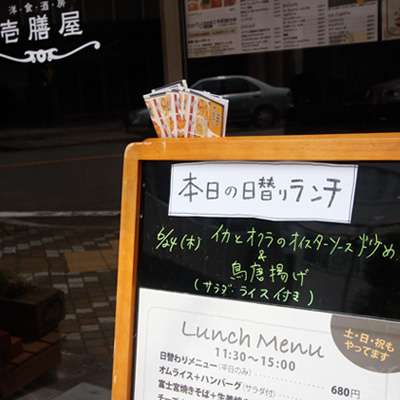 洋・食・酒・房
壱膳屋
本日の日替りランチ
6/24(木) イカとオクラのオイスターソース炒め
&
鳥唐揚げ
(サラダ・ライス付き)
Lunch Menu
11:30〜15:00
土・日・祝も
やってます
日替わりメニュー(平日のみ)
680円
オムライス+ハンバーグ(サラダ付)
富士宮焼きそば+生姜焼